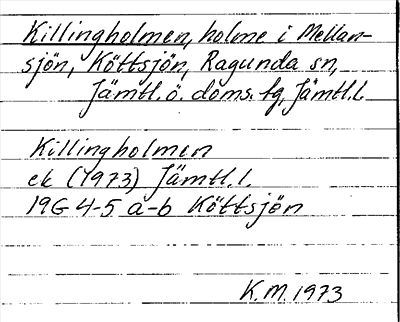 Killingholmen, holme i Mellan-
sjön, Köttsjön, Ragunda sn,
Jämtl.ö. doms. fg, Jämtl.l.
Killingholmen
ek (1973) Jämtl.l.
19G 4-5 a-b Köttsjön
K.M. 1973